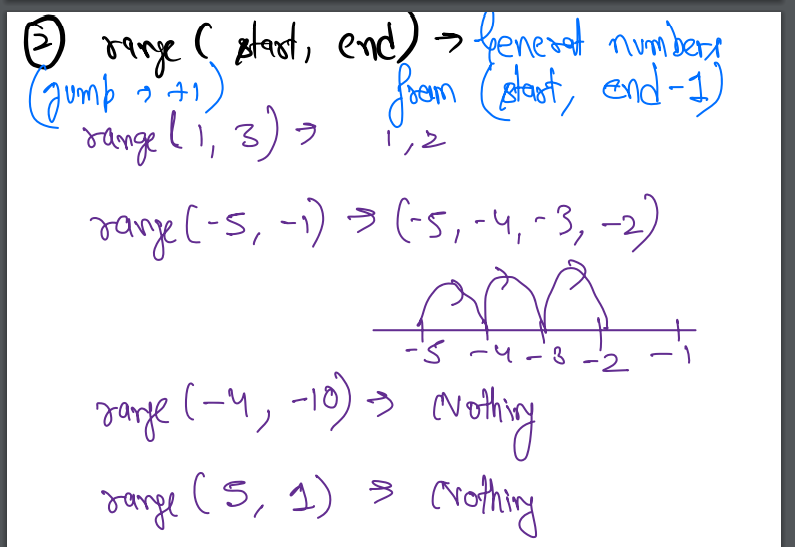 ② range ( start, end) → General numbers
(Jump → +1) from (start, end-1)
range(1, 3) → 1, 2
range(-5, -1) → (-5, -4, -3, -2)
-5 -4 -3 -2 -1
range (-4, -10) → Nothing
range (5, 1) → Nothing